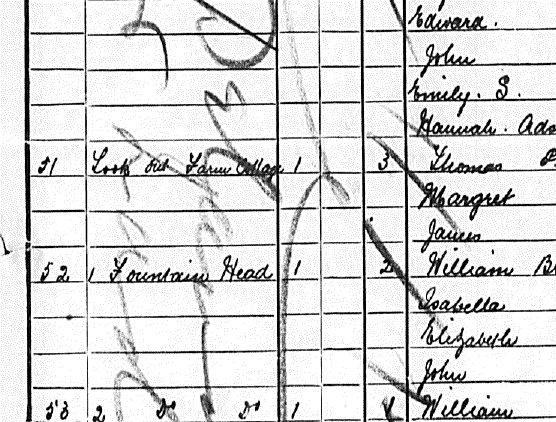 Edward.
John
Emily. S.
Hannah. Ada
51 Look Out Farm Cottage 1 3 Thomas
Margret
James
52 1 Fountain Head 1 2 William
Isabella
Elizabeth
John
53 2 Do Do 1 William